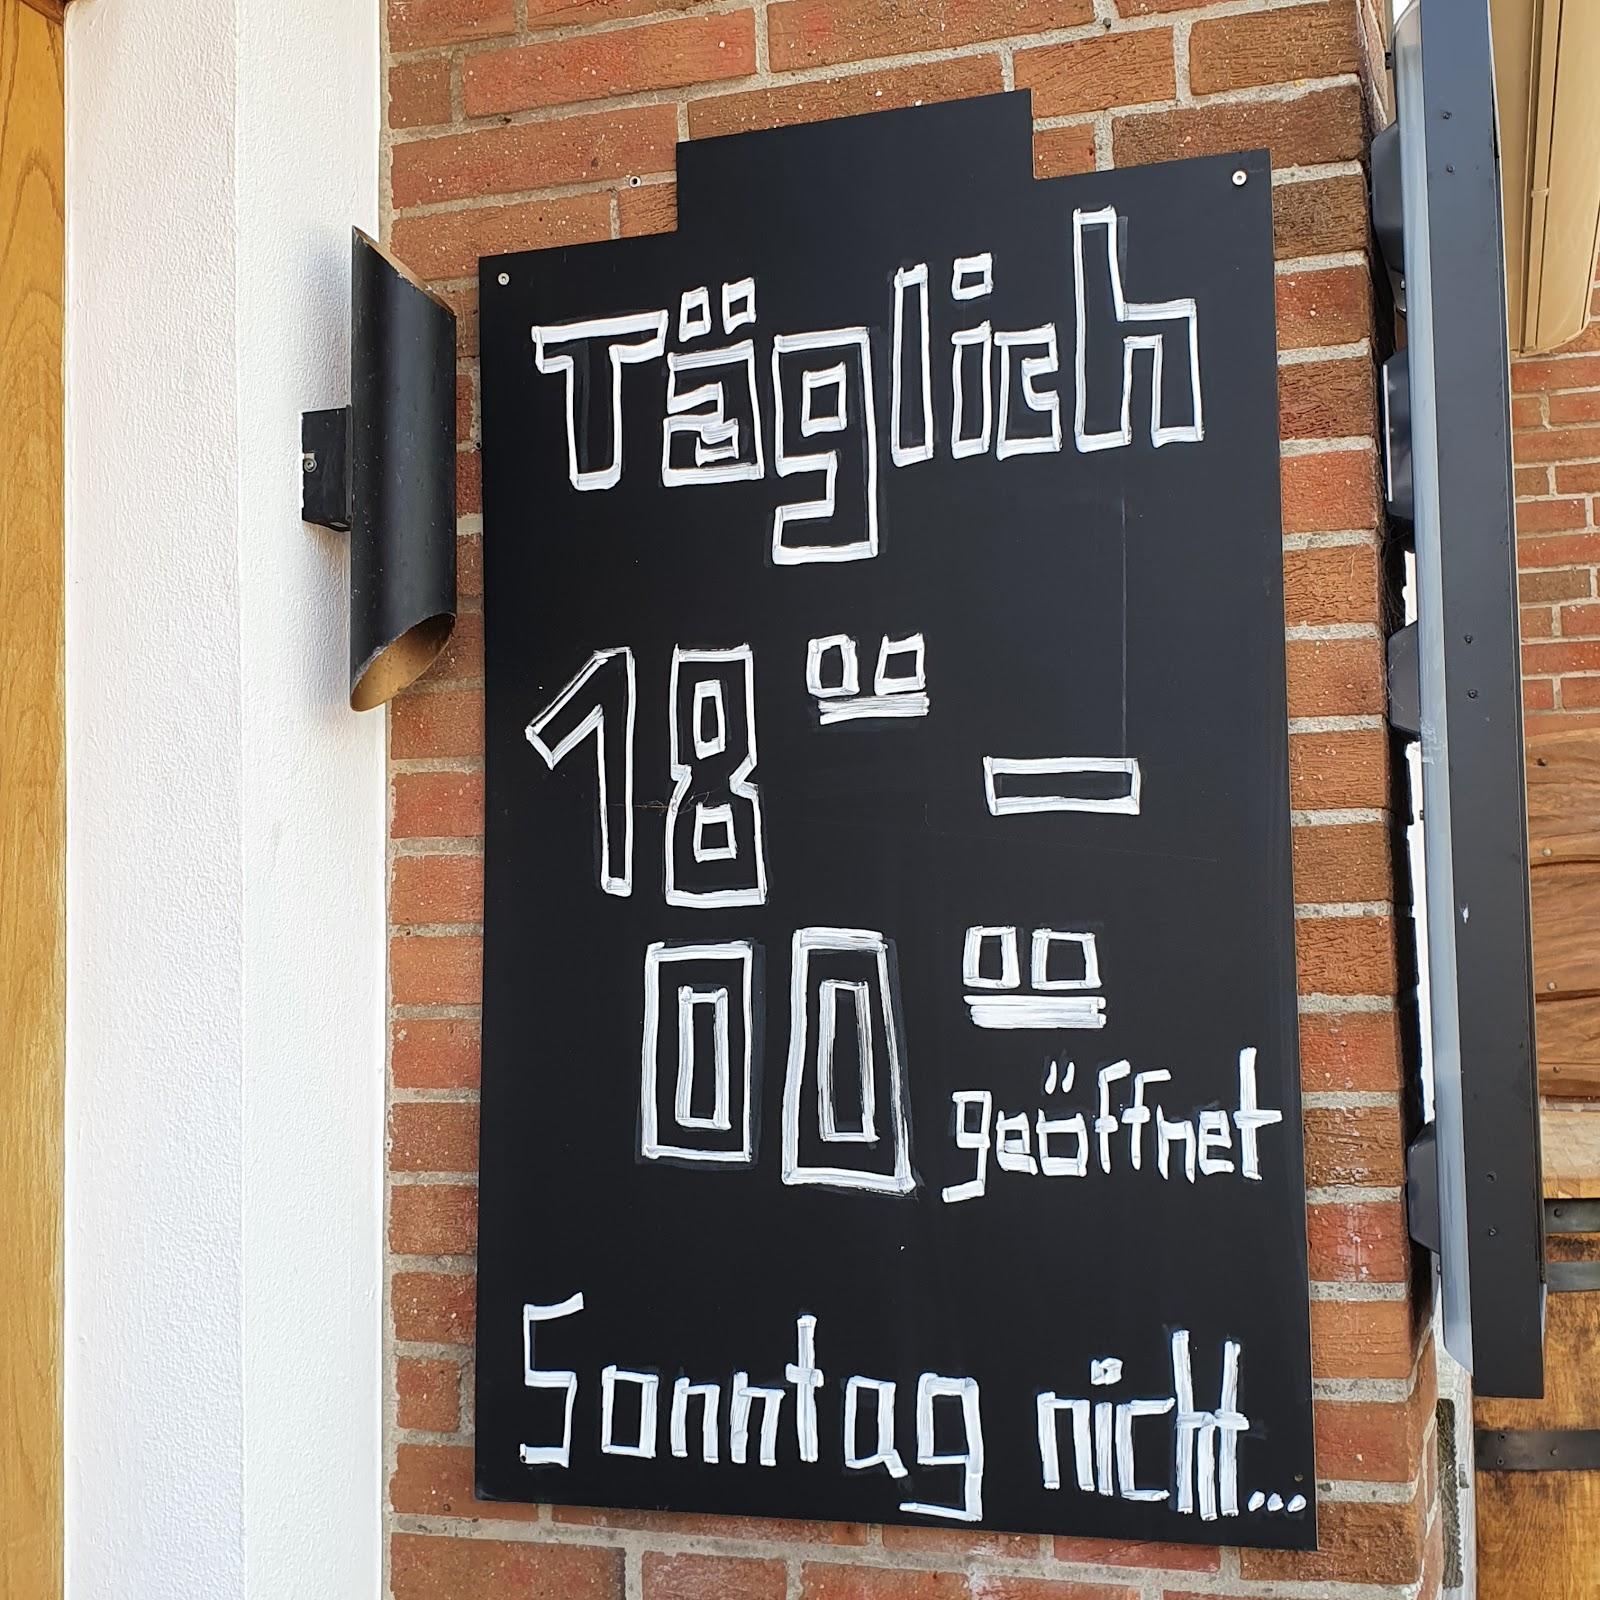 Täglich
18 00 -
00 00 geöffnet
Sonntag nicht...